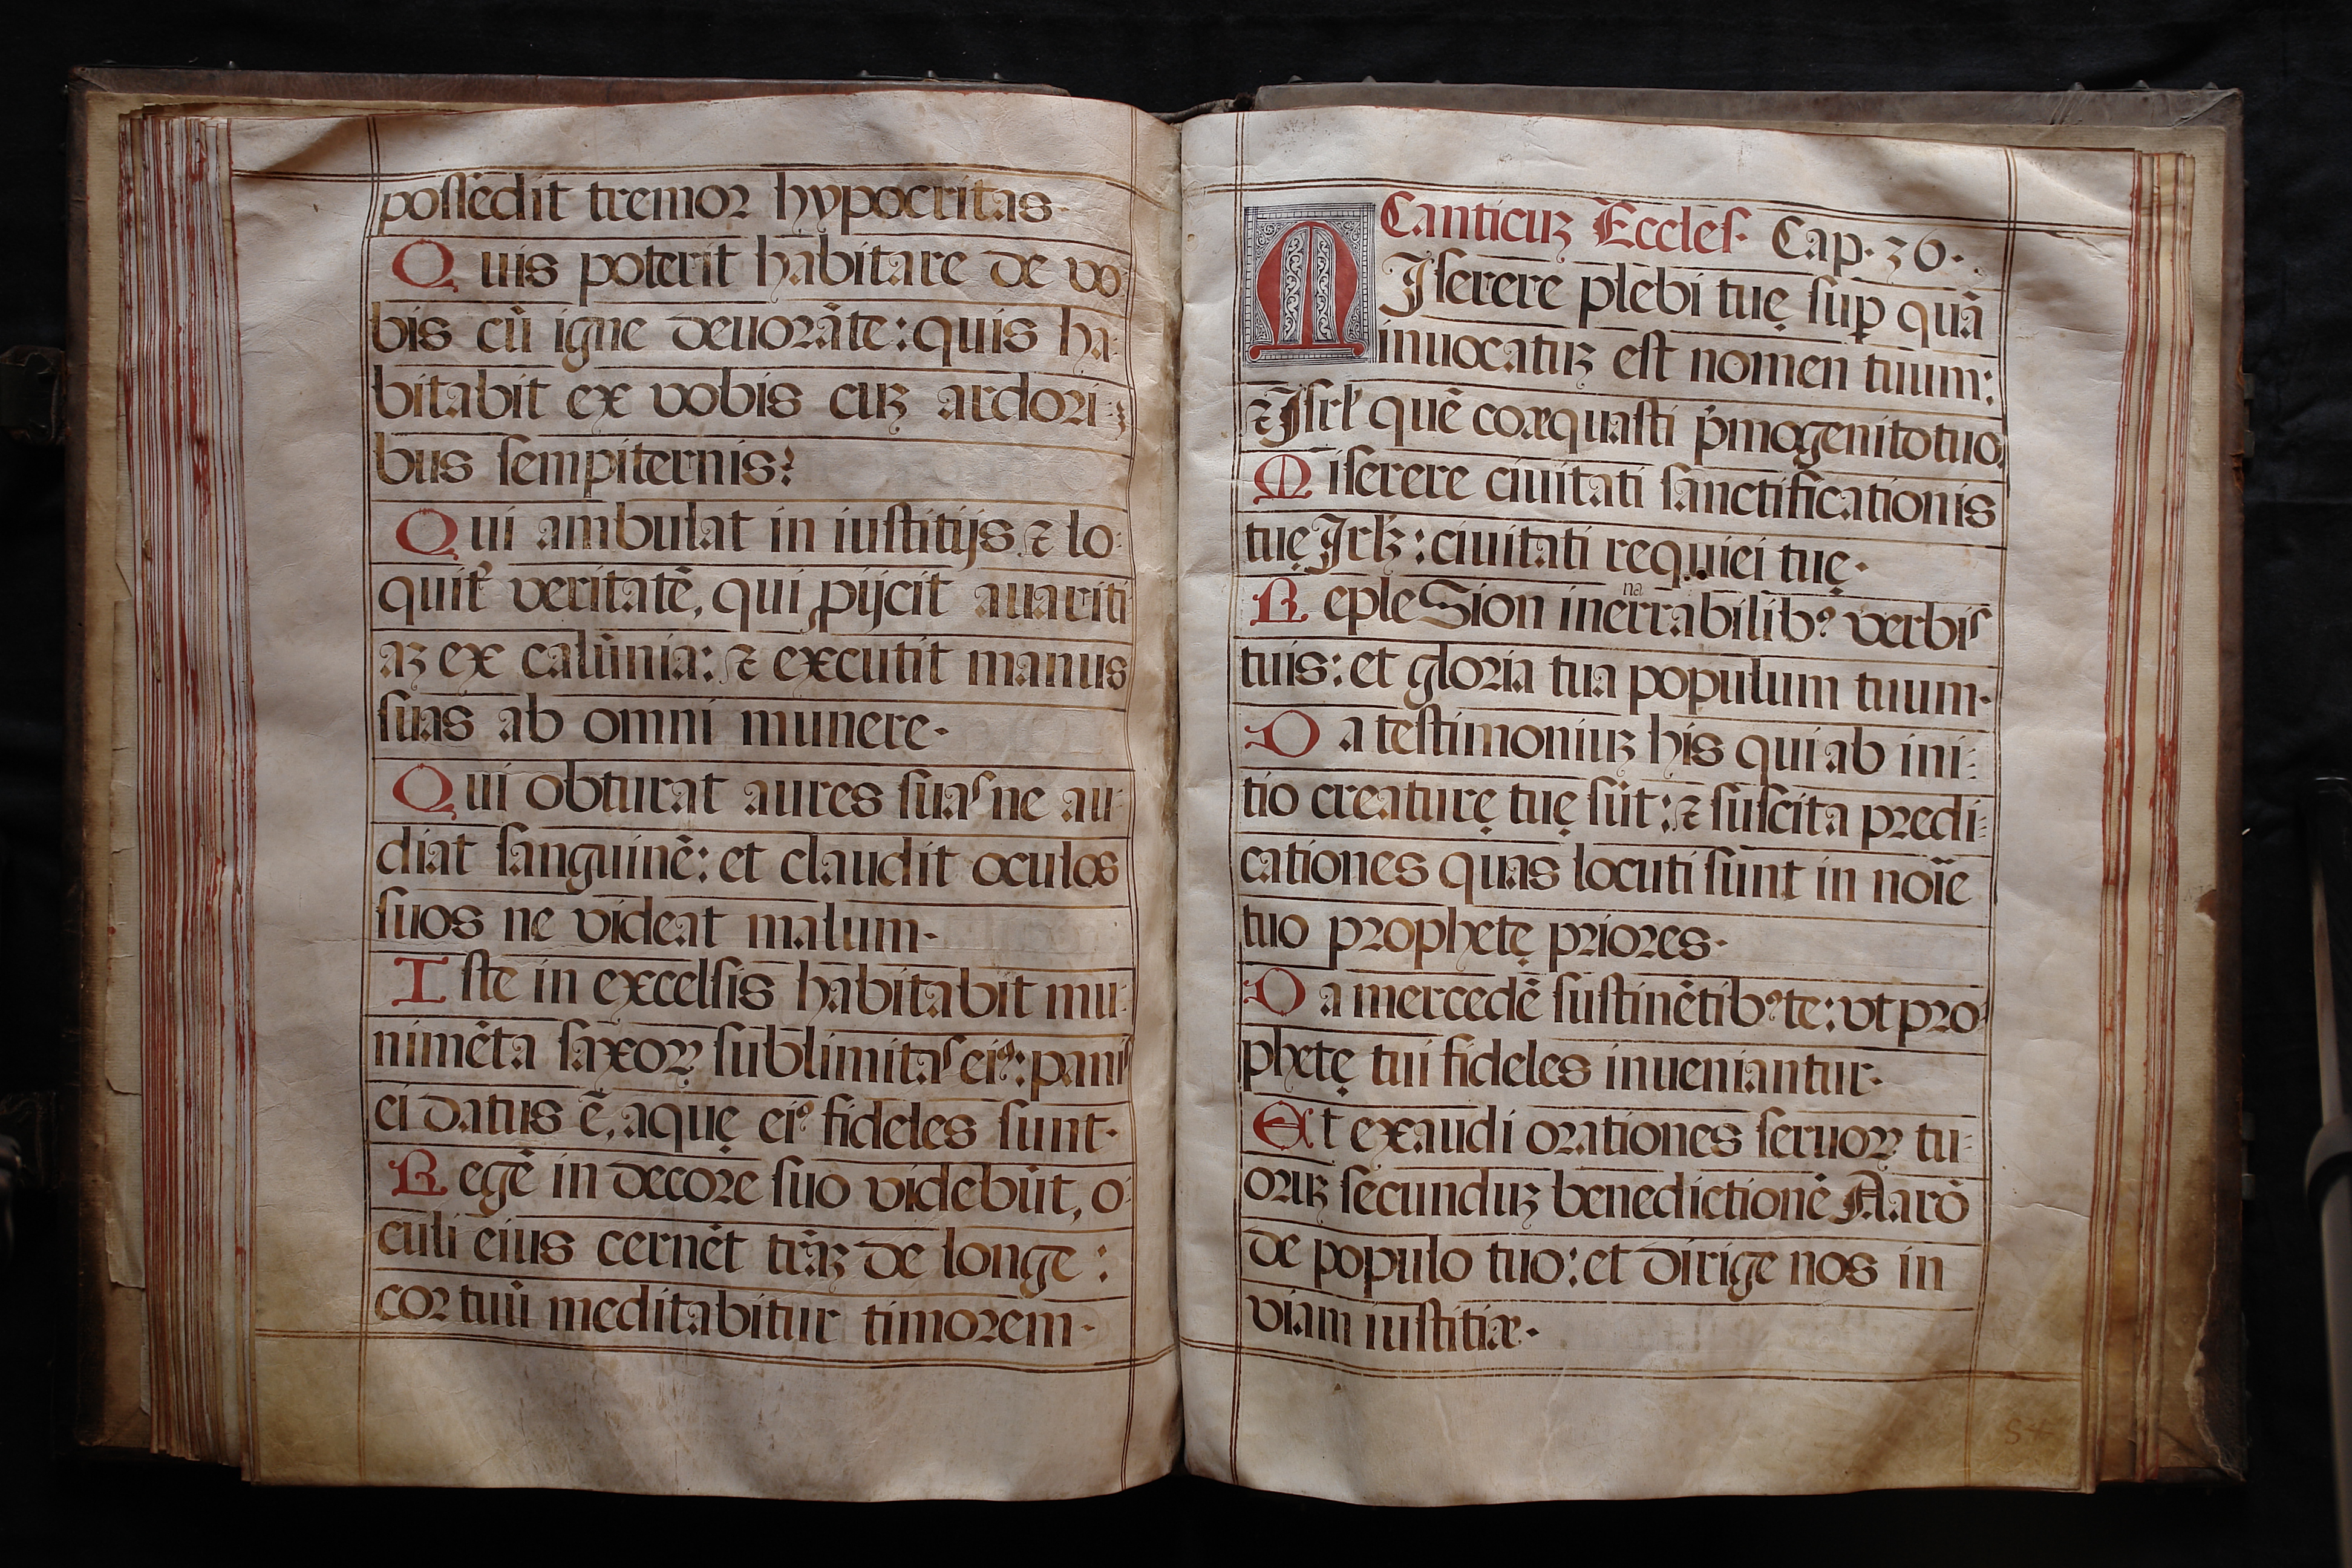 possedit tremor hypocritas·
Quis poterit habitare de vo-
bis cū igne deuorāte: quis ha-
bitabit ex vobis cuꝫ ardori-
bus sempiternis?
Qui ambulat in iustitijs ⁊ lo-
quit᷑ veritatē, qui ꝓijcit auariti
aꝫ ex calūnia: ⁊ excutit manus
suas ab omni munere·
Qui obturat aures suas ne au-
diat sanguinē: et claudit oculos
suos ne videat malum·
Iste in excelsis habitabit mu-
nimēta saxoꝝ sublimitas eiꝰ: panis
ei datus ē, aquę eiꝰ fideles sunt·
Regē in decore suo videbūt, o-
culi eius cernēt tr̄aꝫ de longe:
cor tuū meditabitur timorem·
Canticuꝫ Eccles· Cap· 36·
MIserere plebi tuę suꝑ quā
inuocatuꝫ est nomen tuum:
⁊ Isrl̓ quē coæquasti p̓mogenito tuo.
Miserere ciuitati sanctificationis
tuę Jrlꝫ: ciuitati requiei tuę·
Reple Sion inenarrabilibꝰ verbis
tuis: et gloria tua populum tuum·
Da testimoniuꝫ his qui ab ini-
tio creaturę tuę sūt: ⁊ suscita predi-
cationes quas locuti sunt in noīe
tuo prophetę priores·
Da mercedē sustinētibꝰ te: vt pro-
phetę tui fideles inueniantur·
Et exaudi orationes seruoꝝ tu-
oruꝫ secunduꝫ benedictionē Aarō
de populo tuo: et dirige nos in
viam iustitiæ·